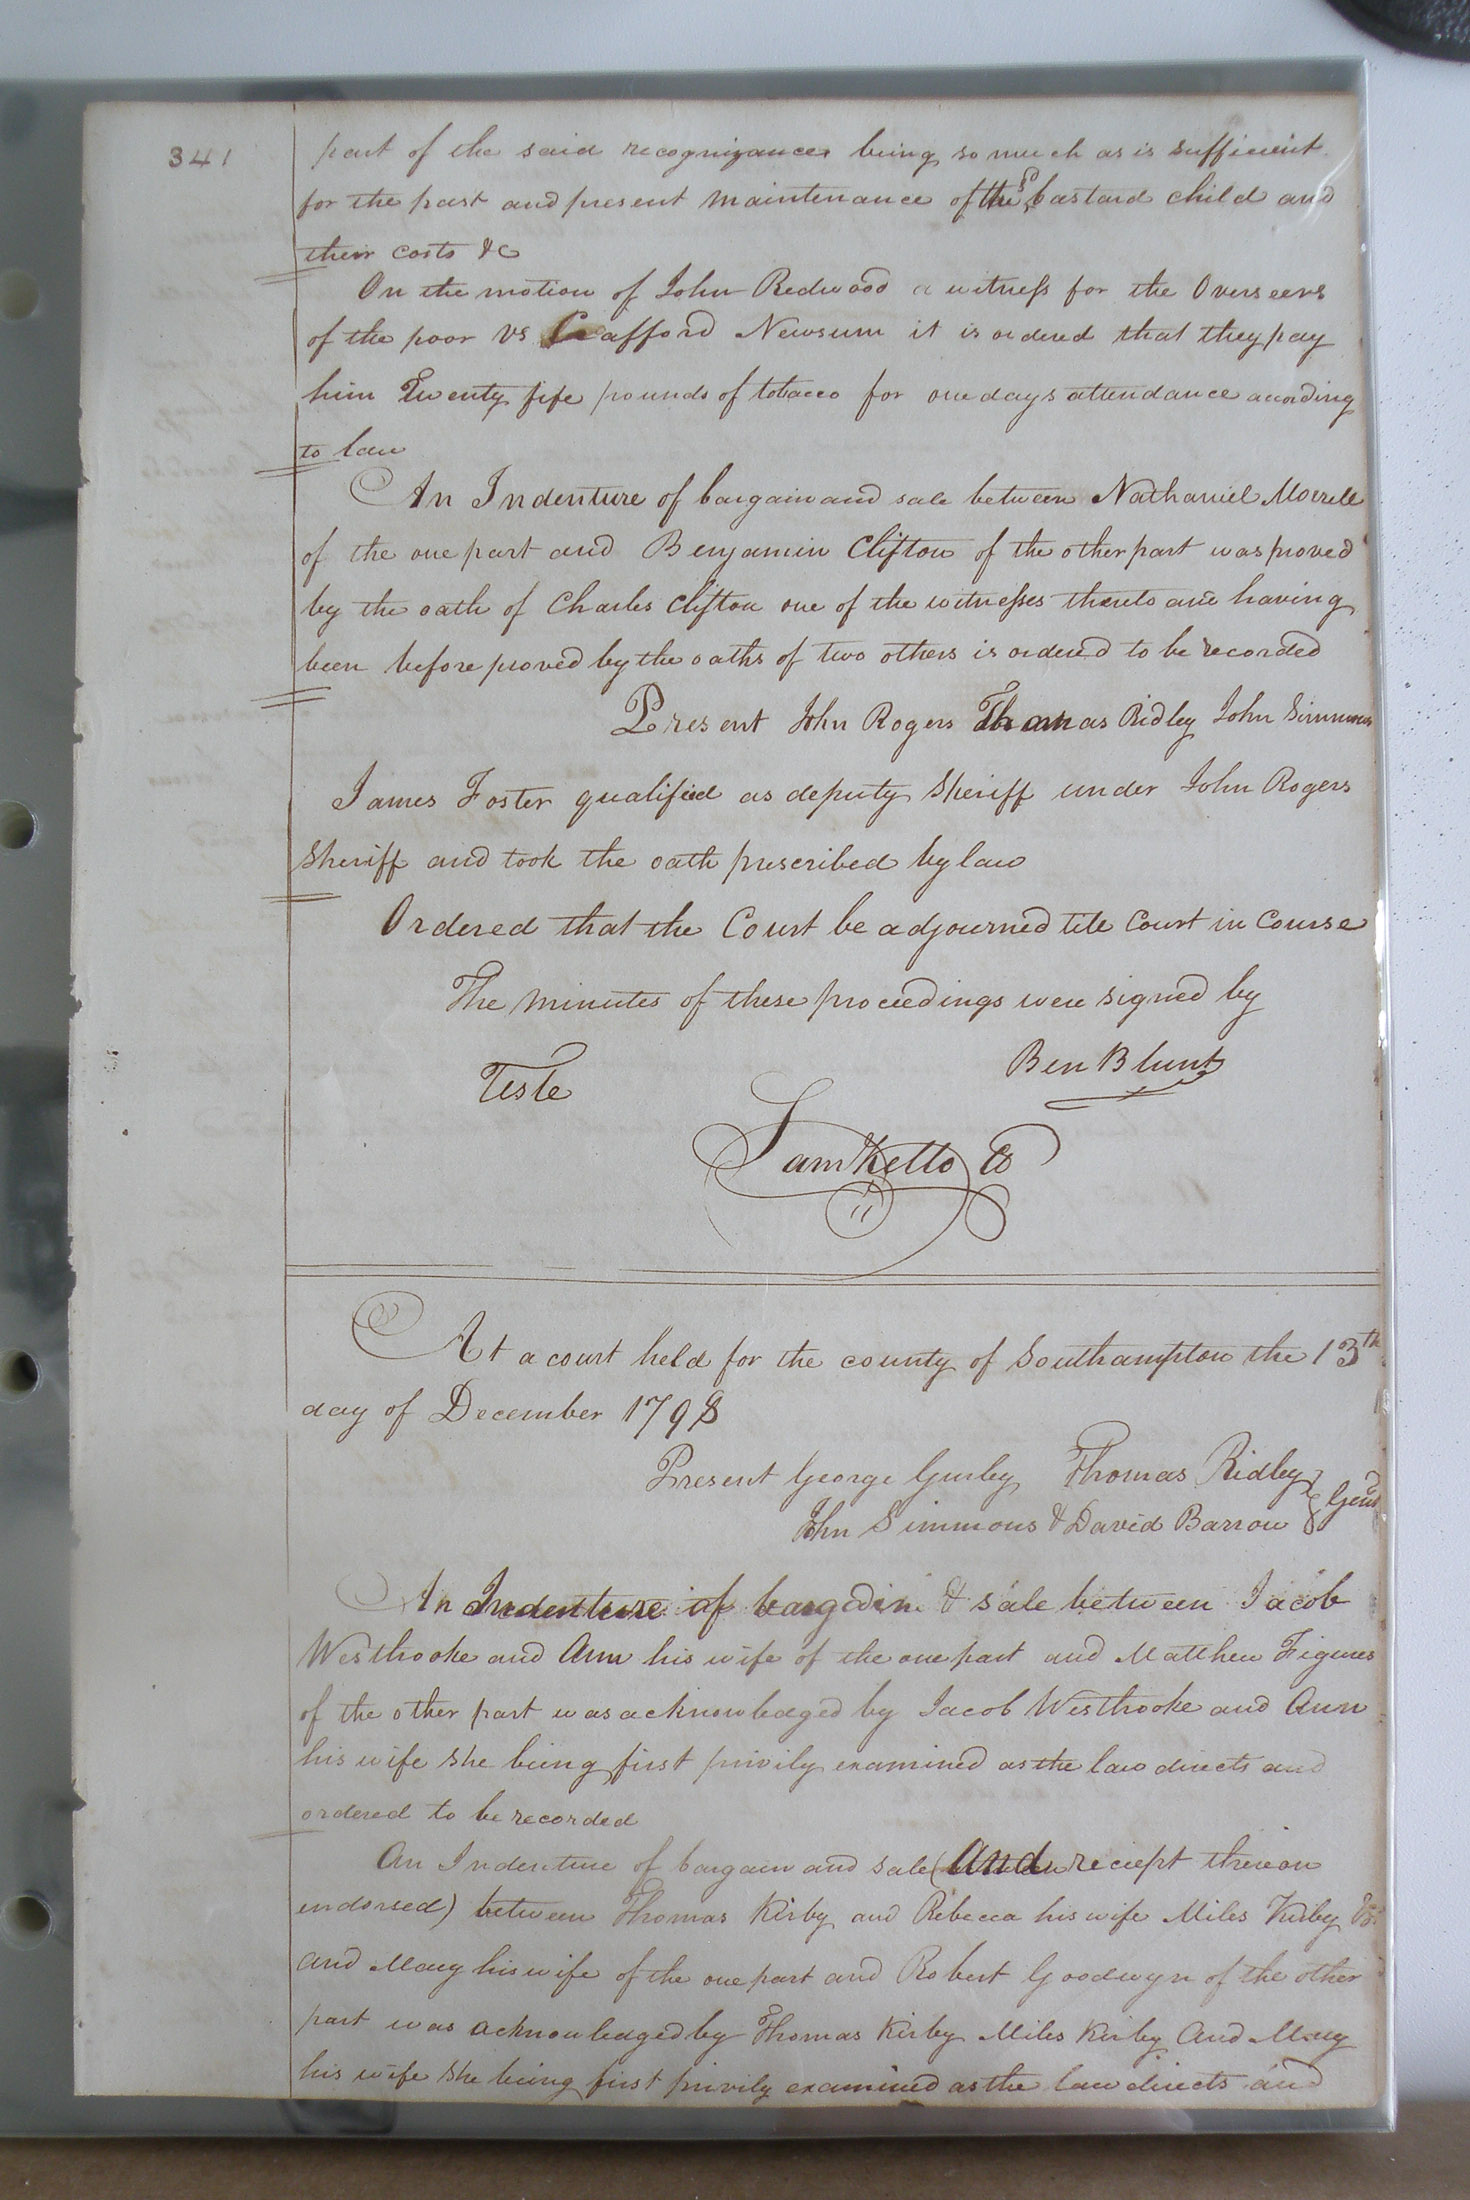 341
part of the said recognizances being so much as is sufficient
for the past and present maintenance of the sd bastard child and
their costs &c
On the motion of John Redwood a witness for the Overseers
of the poor vs Crafford Newsum it is ordered that they pay
him Twenty fife pounds of tobacco for one days attendance according
to law
An Indenture of bargain and sale between Nathaniel Morrell
of the one part and Benjamin Clifton of the other part was proved
by the oath of Charles Clifton one of the witnesses thereto and having
been before proved by the oaths of two others is ordered to be recorded
Present John Rogers Thomas Ridley John Simmons
James Foster qualified as deputy Sheriff under John Rogers
Sheriff and took the oath prescribed by law
Ordered that the Court be adjourned till Court in Course
The minutes of these proceedings were signed by
Ben Blunt
Teste
Sam Kello CC
At a court held for the county of Southampton the 13th
day of December 1798
Present George Gurley Thomas Ridley
John Simmons & David Barrow } Gent
An Indenture of bargain & sale between Jacob
Westbrooke and Ann his wife of the one part and Matthew Figures
of the other part was acknowledged by Jacob Westbrooke and Ann
his wife she being first privily examined as the law directs and
ordered to be recorded
An Indenture of bargain and sale (and reciept thereon
endorsed) between Thomas Kirby and Rebecca his wife Miles Kirby
and Mary his wife of the one part and Robert Goodwyn of the other
part was acknowledged by Thomas Kirby Miles Kirby and Mary
his wife she being first privily examined as the law directs and